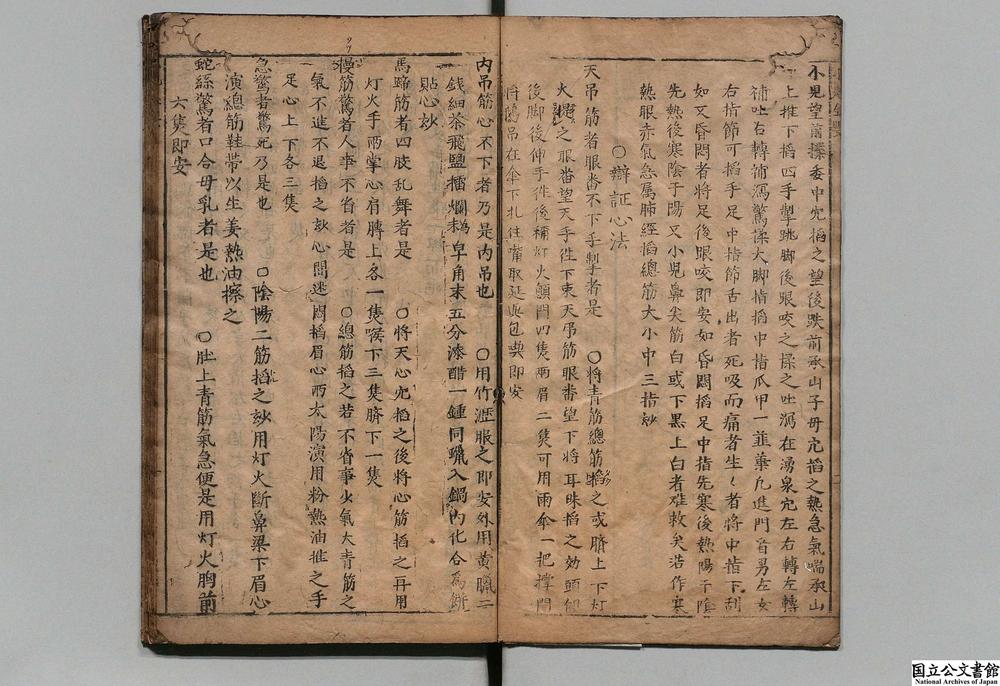 小児望前揉委中宂搯之望後跌前承山子母宂搯之熱急氣喘承山
上推下搯四手掣跳脚後跟咬之揉之吐瀉在湧泉宂左右轉左轉
補吐右轉補瀉驚揉大脚指搯中指爪甲一韮華凢進門看男左女
右指節可搯手足中指節舌出者死吸而痛者生〻者將中指下刮
如又昏悶者將足後跟咬即安如昏悶搯足中指先寒後熱陽干陰
先熱後寒陰干陽又小児鼻尖筋白或下黒上白者难救矣浩作寒
熱眼赤氣急属肺經搯總筋大小中三指妙
○辯証心法
天吊筋者眼畨不下手掣者是 ○將青筋總筋搯之或臍上下灯
火之眼畨望天手徃下束天吊筋眼畨望下將耳珠搯之効頭仰
後脚後伸手徃後補灯火顖門四隻兩眉二隻可用雨傘一把撑開
將鵝吊在傘下扎徃嘴取延與包奭即安
内吊筋心不下者乃是内吊也 ○用竹瀝服之即安外用黄臘二
錢細茶飛鹽擂爛為末皁角末五分漆醋一鍾同臘入鍋内化合為餅
貼心妙
馬蹄筋者四肢乱舞者是 ○將天心宂搯之後將心筋搯之再用
灯火手兩掌心肩膊上各一隻喉下三隻臍下一隻
慢筋驚者人事不省者是 ○總筋搯之若不省事少氣大青筋之
氣不進不退搯之妙心間迷悶搯眉心兩太陽演用粉熱油推之手
足心上下各三隻
急驚者驚死乃是也 ○陰陽二筋搯之妙用灯火斷鼻梁下眉心
演總筋鞋带以生姜熱油擦之
蛇絲驚者口合母乳者是也 ○肚上青筋氣急便是用灯火胸前
六隻即安
国立公文書館
National Archives of Japan